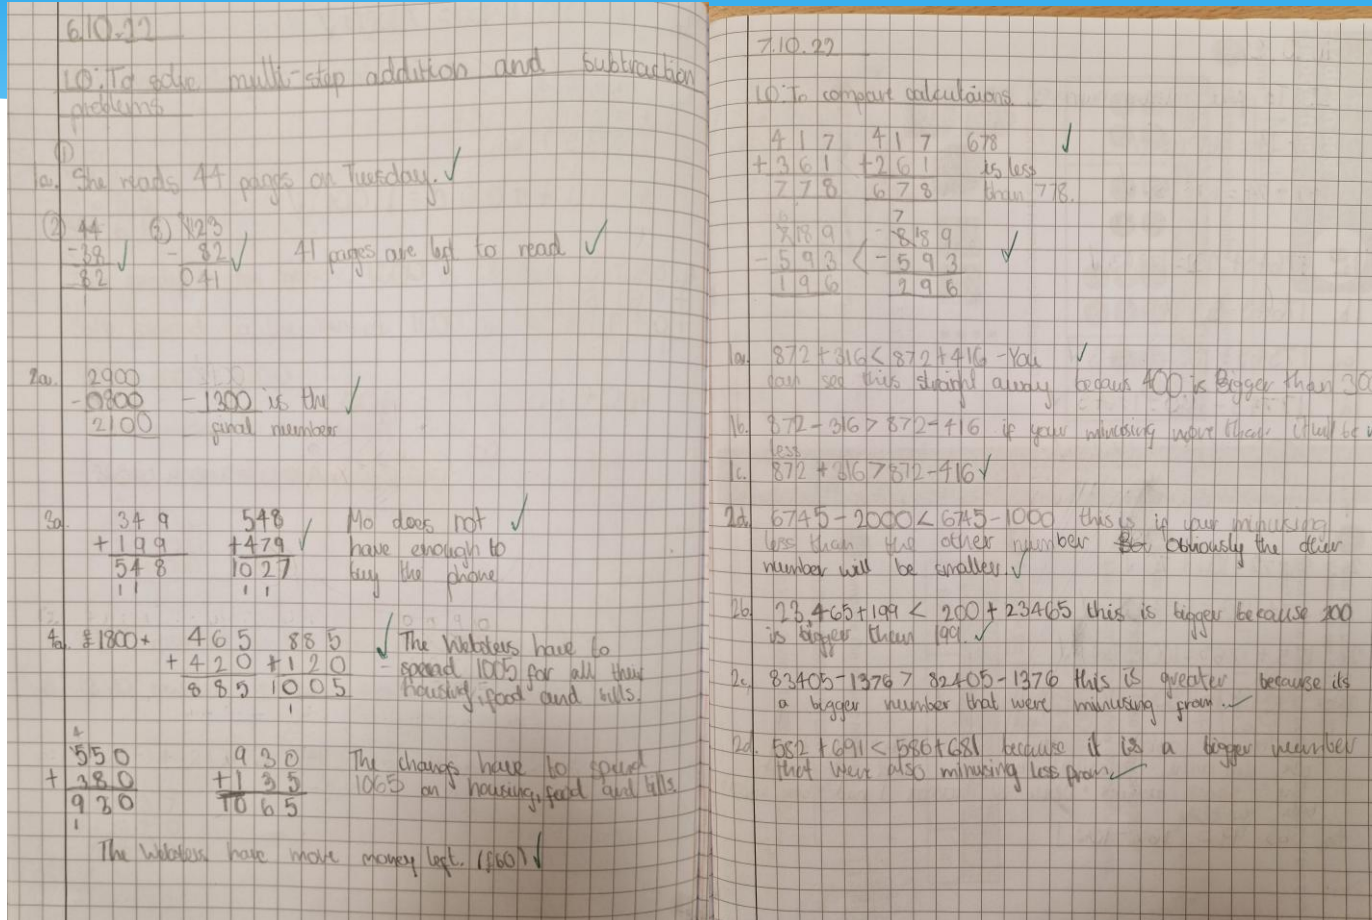 6.10.22
LO: To solve multi-step addition and subtraction
problems
①
1a. She reads 44 pages on Tuesday. ✓
② 44 ③ 123
-38 ✓ - 82 ✓ 41 pages are left to read ✓
82 041
2a. 2900
-0800 - 1300 is the ✓
2100 final numbers
3a. 349 548 Mo does not ✓
+199 +479 ✓ have enough to
548 1027 buy the phone
11 11
4a. £1800+ 465 885 ✓ The Websters have to
+420 +120 - spend 1005 for all their
885 1005 housing, food and bills.
1
550 930 The changs have to spend
+380 +135 1065 on housing, food and bills
930 1065
1
The Websters have more money left. (£60) ✓
7.10.22
LO: To compare calculations.
417 417 678 ✓
+361 +261 is less
778 678 than 778.
7
789 889
-593 < -593 ✓
196 296
1a. 872+316<872+416 -You ✓
can see this straight away becaus 400 is Bigger than 30
1b. 872-316>872-416 if your minusing more then it will be
less
1c. 872+316>872-416 ✓
2a. 6745-2000<6745-1000 this is if your minusing
less than the other number obviously the other
number will be smaller ✓
2b. 23,465+199 < 200+23465 this is bigger because 200
is bigger than 199. ✓
2c. 83405-1376 > 82405-1376 this is greater because its
a bigger number that were minusing from. ✓
2d. 582+691<586+681 because it is a bigger number
that were also minusing less from ✓